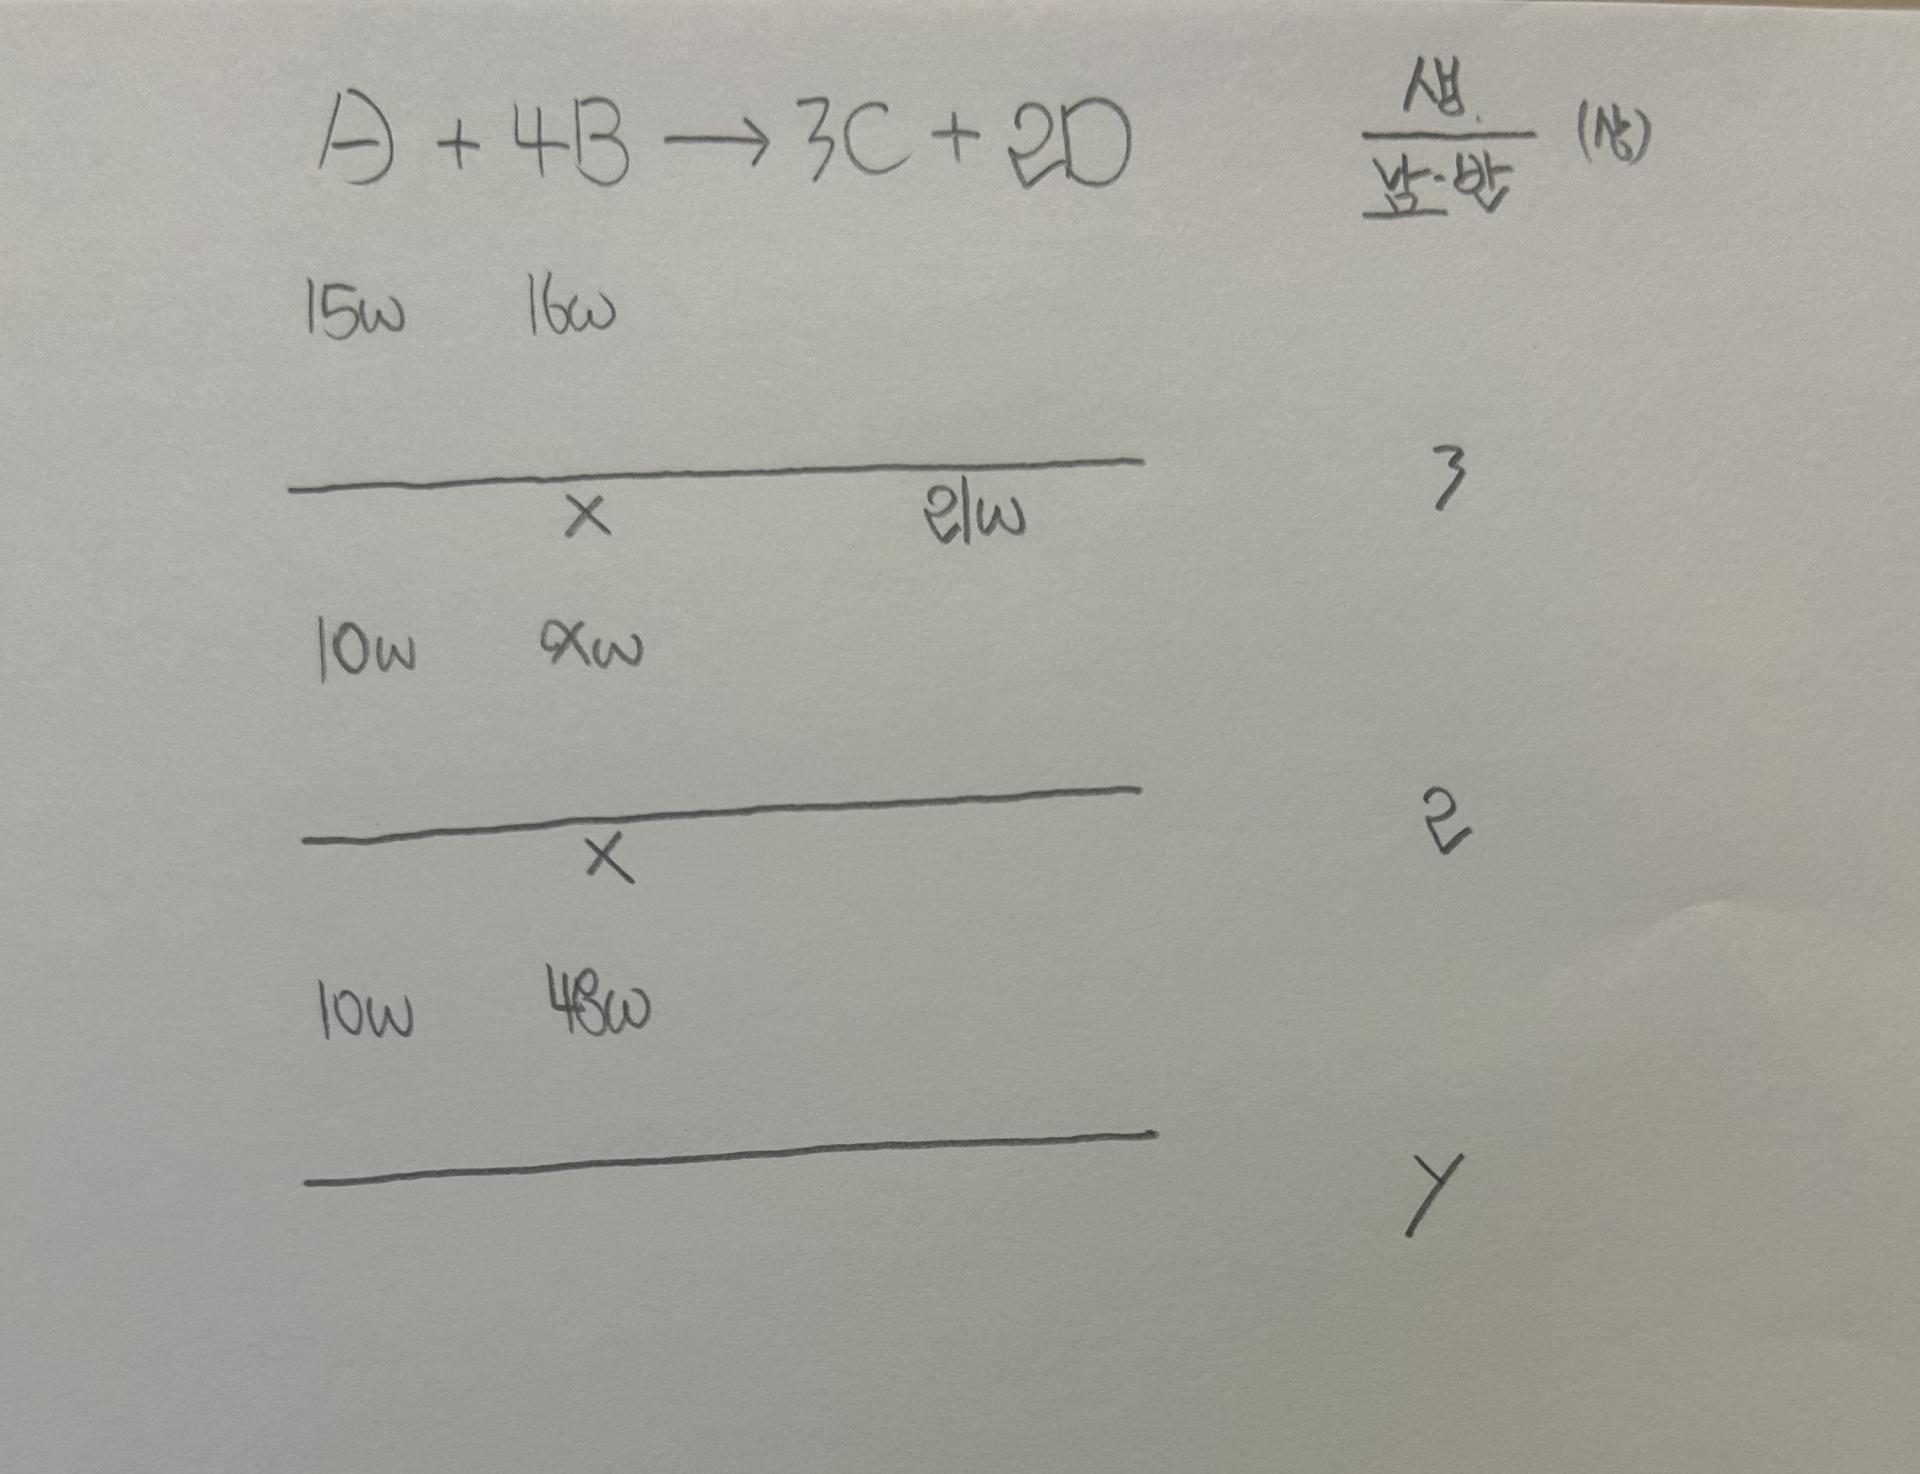 A + 4B → 3C + 2D 생. / 남·반 (상)
15w 16w
x 21w 3
10w xw
x 2
10w 48w
y